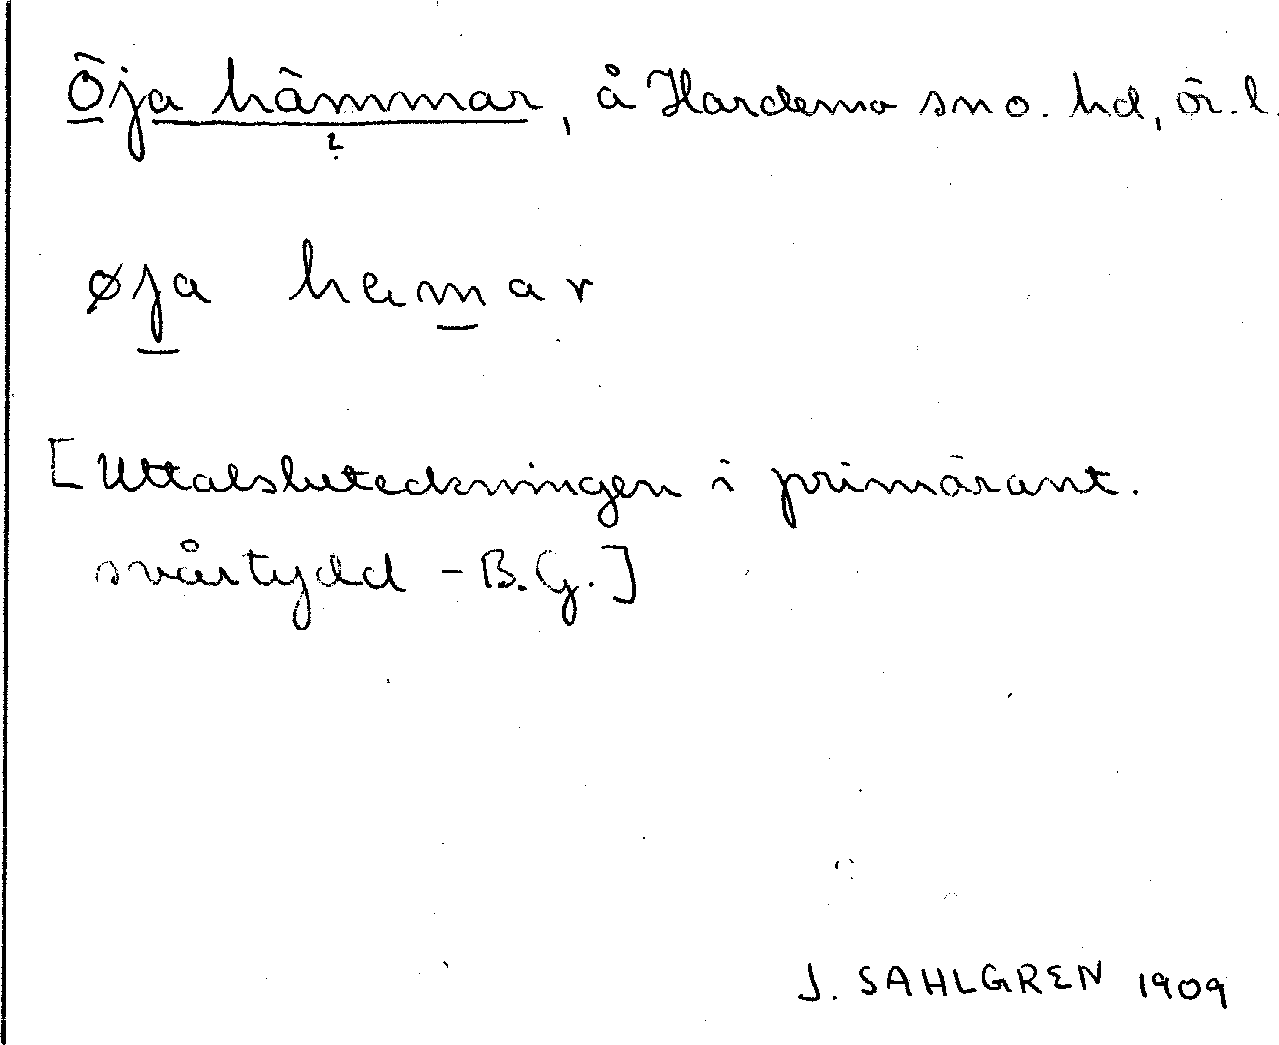 Öja hämmar, å Hardemo sn o. hd, ör. l.
?
øja hæmar
[Uttalsbeteckningen i primärant.
svårtydd - B.G.]
J. SAHLGREN 1909